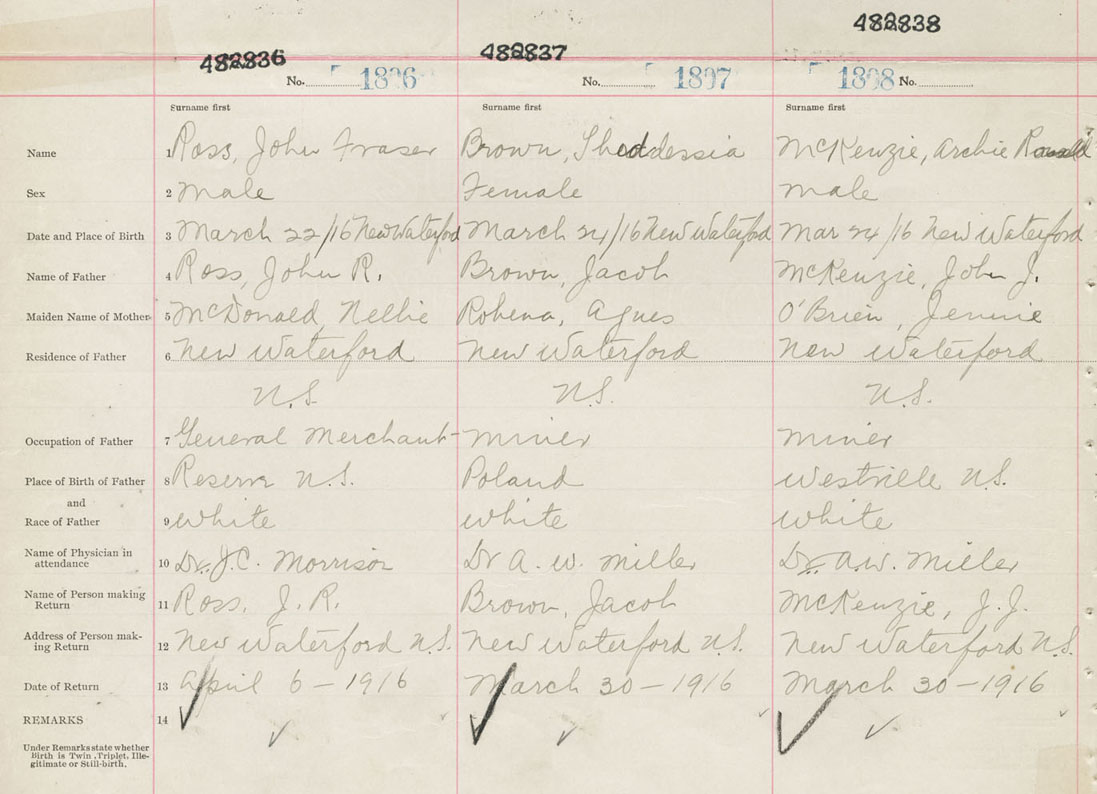 482836 482837 482838
No. 1896 No. 1897 1898 No.
Surname first Surname first Surname first
Name 1 Ross, John Fraser Brown, McKenzie, Archie
Sex 2 male Female male
Date and Place of Birth 3 March 22/16 New Waterford March 24/16 New Waterford Mar 24/16 New Waterford
Name of Father 4 Ross, John R. Brown, Jacob McKenzie, John J.
Maiden Name of Mother 5 McDonald, Nellie Robena, Agnes O'Brien, Jennie
Residence of Father 6 New Waterford New Waterford New Waterford
N.S. N.S. N.S.
Occupation of Father 7 General Merchant miner miner
Place of Birth of Father 8 Reserve N.S. Poland Westville N.S.
and
Race of Father 9 white white white
Name of Physician in
attendance 10 Dr. J.C. Morrison Dr A. W. Miller Dr. A.W. Miller
Name of Person making
Return 11 Ross, J. R. Brown, Jacob McKenzie, J.J.
Address of Person mak-
ing Return 12 New Waterford N.S. New Waterford N.S. New Waterford N.S.
Date of Return 13 April 6 - 1916 March 30 - 1916 March 30 - 1916
REMARKS 14
Under Remarks state whether
Birth is Twin, Triplet, Ille-
gitimate or Still-birth.